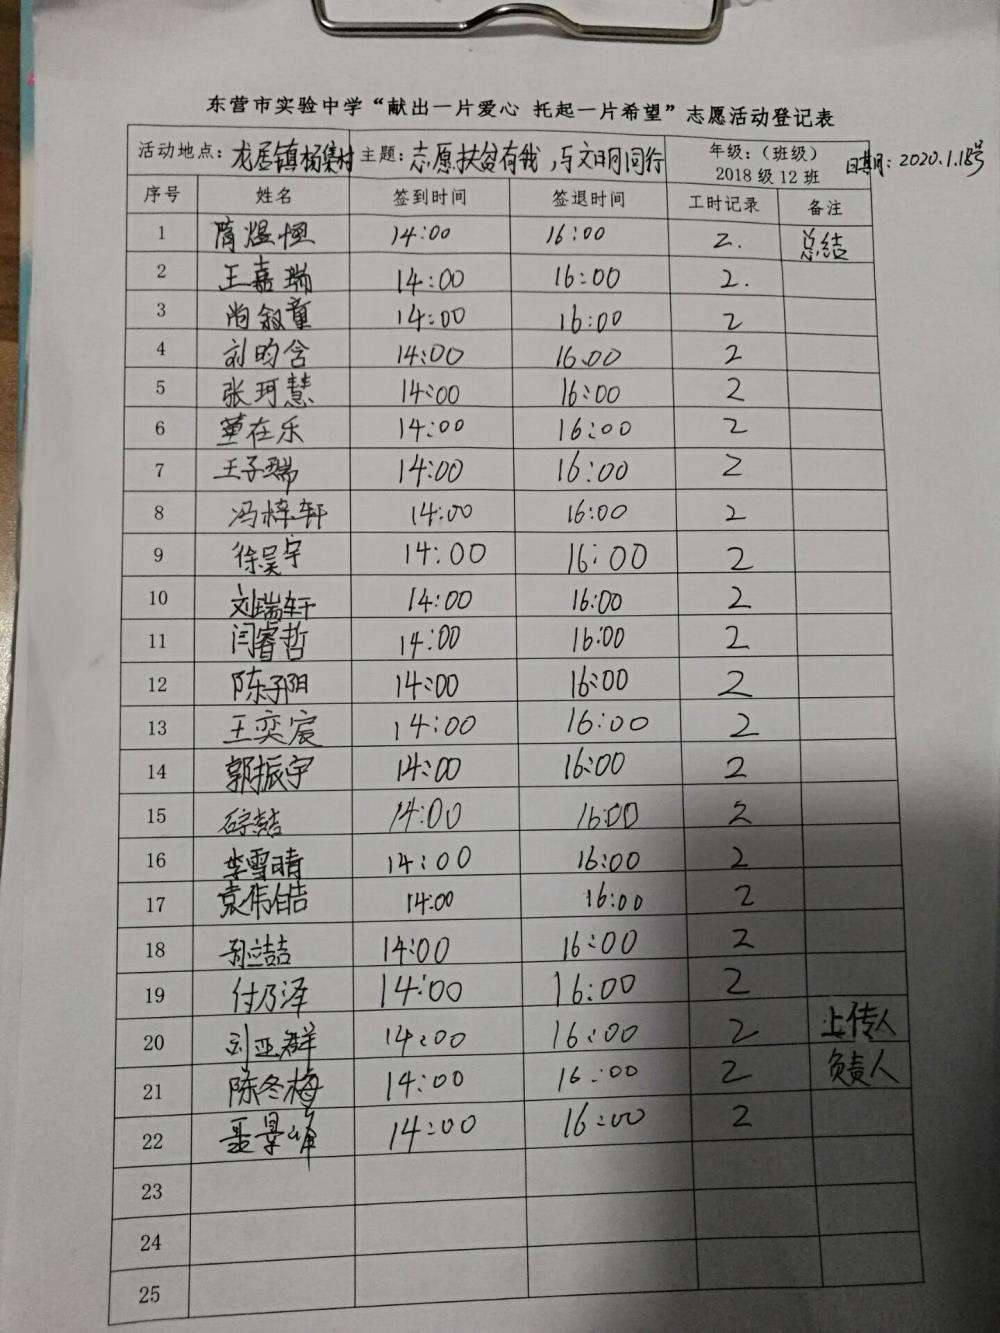 东营市实验中学“献出一片爱心 托起一片希望”志愿活动登记表
活动地点：龙居镇杨集村 主题：志愿扶贫有我，与文明同行 年级：（班级） 2018级12班 日期：2020.1.18号
序号 姓名 签到时间 签退时间 工时记录 备注
1 隋煜恒 14:00 16:00 2. 总结
2 王嘉瑞 14:00 16:00 2.
3 尚叙童 14:00 16:00 2
4 刘昀含 14:00 16.00 2
5 张珂慧 14:00 16:00 2
6 董在乐 14:00 16:00 2
7 王子瑞 14:00 16:00 2
8 冯梓轩 14:00 16:00 2
9 徐昊宇 14:00 16:00 2
10 刘瑞轩 14:00 16:00 2
11 闫睿哲 14:00 16:00 2
12 陈子阳 14:00 16:00 2
13 王奕宸 14:00 16:00 2
14 郭振宇 14:00 16:00 2
15 14:00 16:00 2
16 李雪晴 14:00 16:00 2
17 袁伟皓 14:00 16:00 2
18 孙喆 14:00 16:00 2
19 付乃泽 14:00 16:00 2
20 刘亚群 14:00 16:00 2 上传人
21 陈冬梅 14:00 16:00 2 负责人
22 聂景峰 14:00 16:00 2
23
24
25